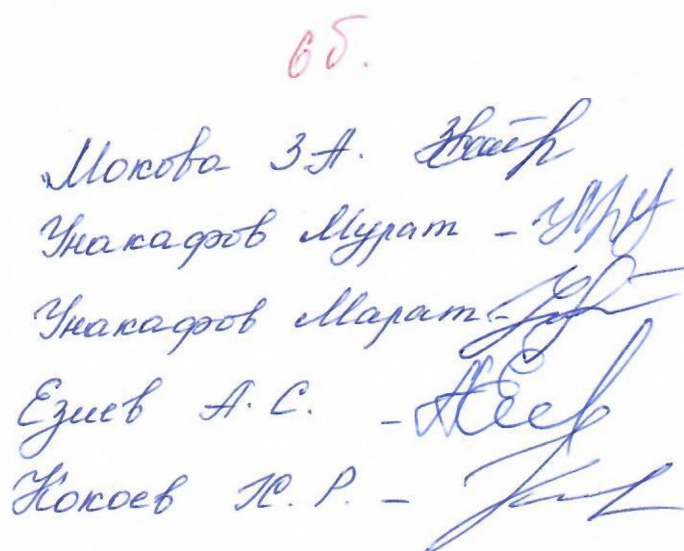 6 б.
Мокова З.А.
Унакафов Мурат -
Унакафов Марат -
Езиев А.С. -
Кокоев Х.Р. -